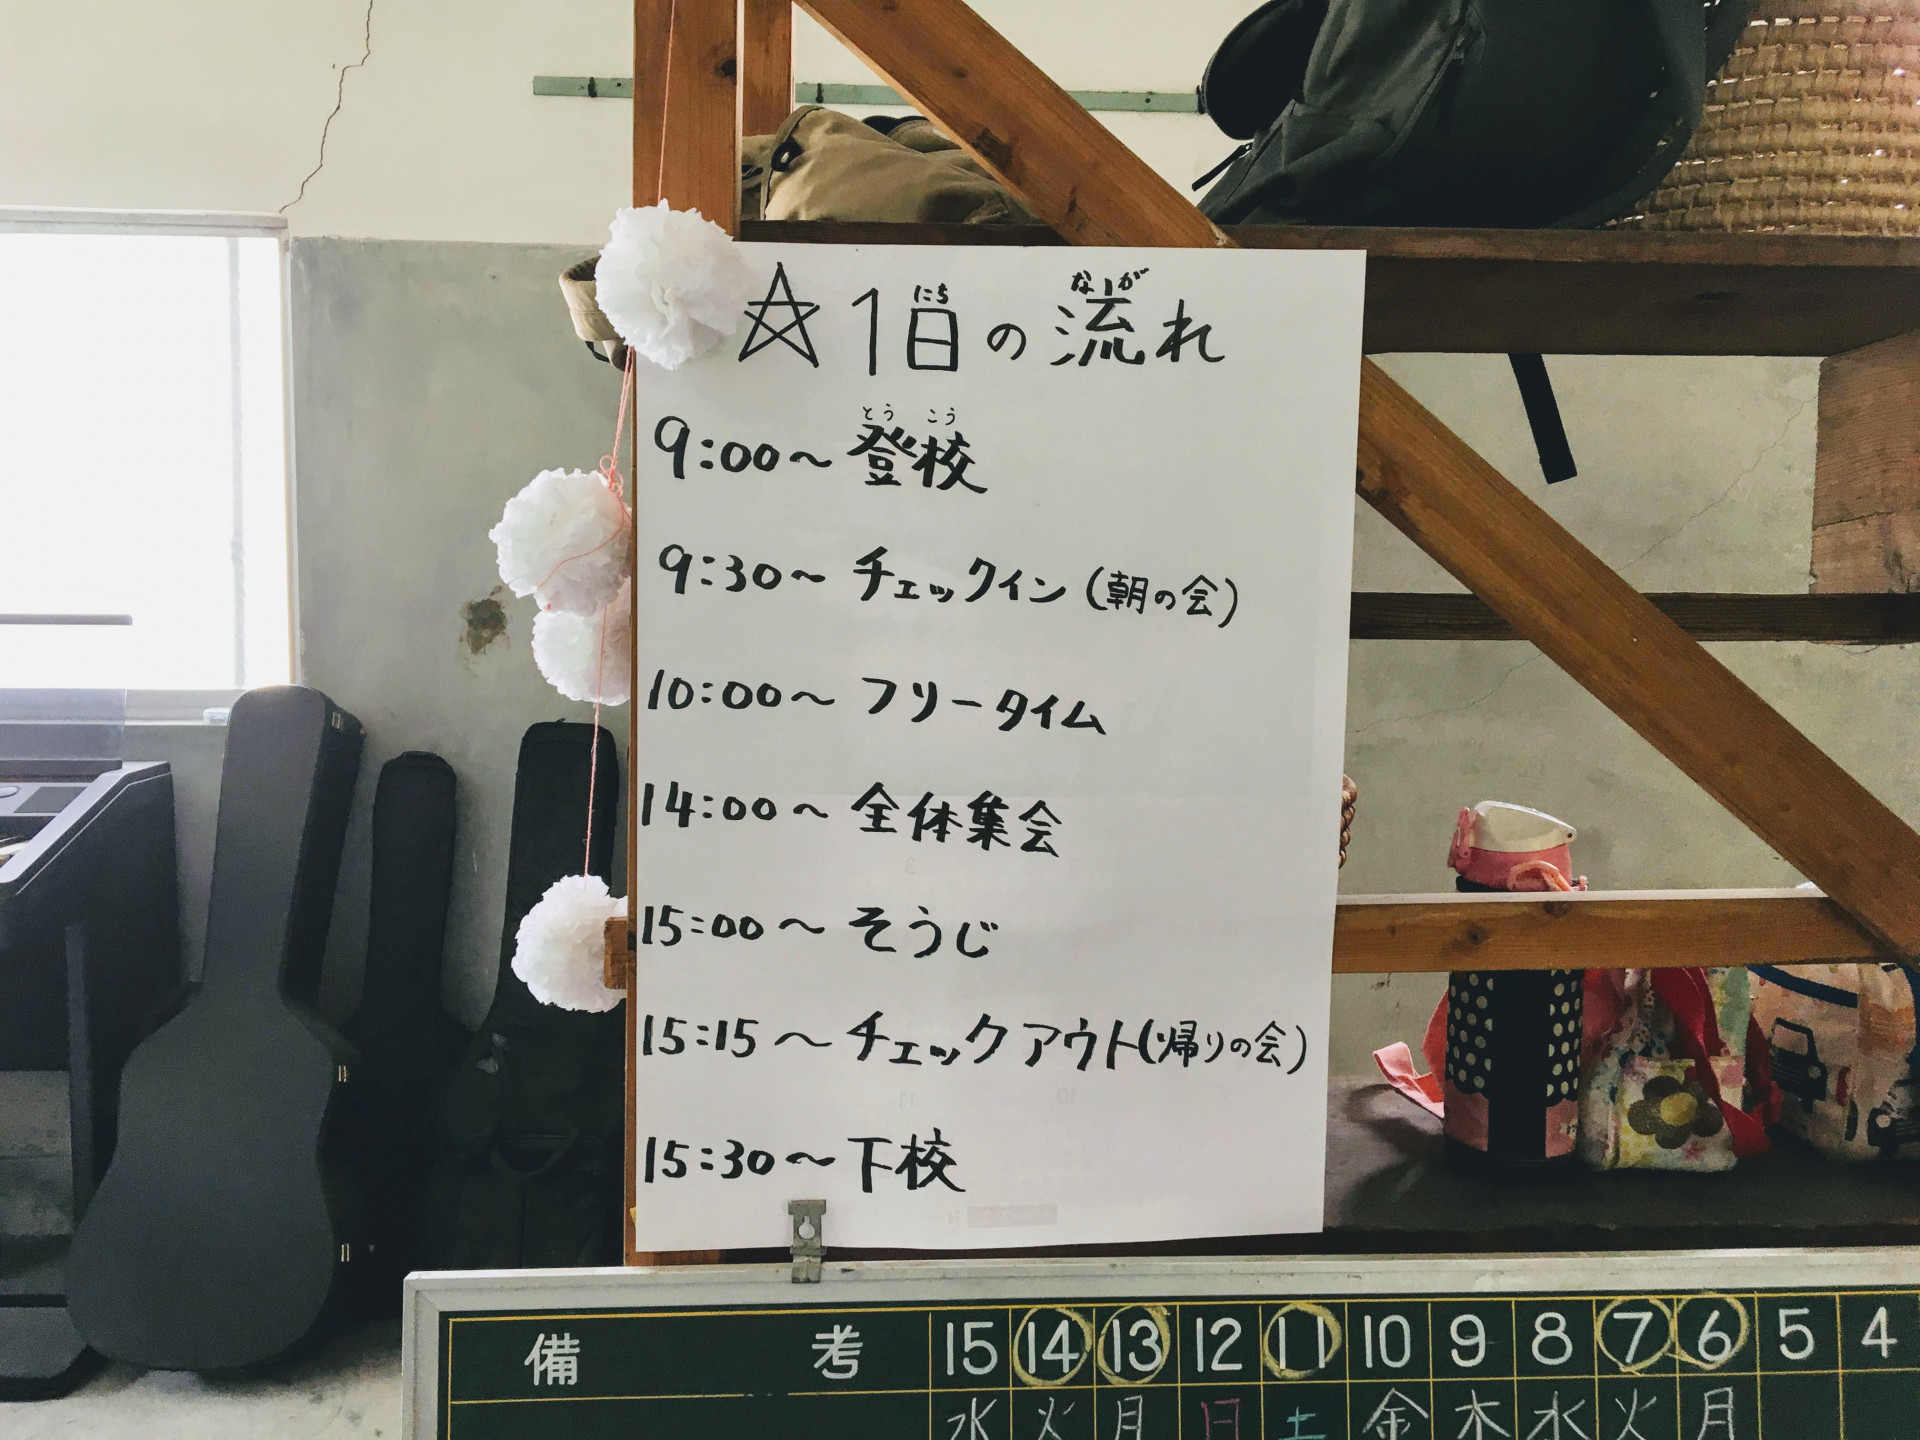 ☆1日の流れ
にち なが
9:00～登校
とうこう
9:30～チェックイン(朝の会)
10:00～フリータイム
14:00～全体集会
15:00～そうじ
15:15～チェックアウト(帰りの会)
15:30～下校
備考 15 14 13 12 11 10 9 8 7 6 5 4
水 火 月 日 土 金 木 水 火 月